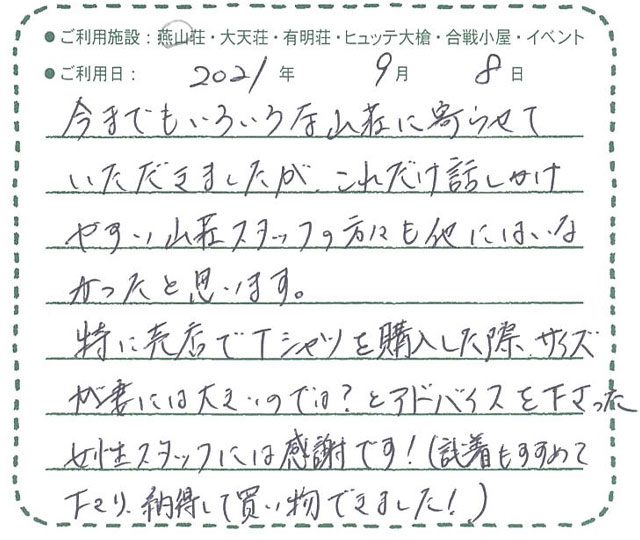 ●ご利用施設：燕山荘・大天荘・有明荘・ヒュッテ大槍・合戦小屋・イベント
●ご利用日： 2021年 9月 8日
今までもいろいろな山荘に寄らせて
いただきましたが、これだけ話しかけ
やすい山荘スタッフの方々も他にはいな
かったと思います。
特に売店でTシャツを購入した際、サイズ
が妻には大きいのでは？とアドバイスを下さった
女性スタッフには感謝です！（試着もすすめて
下さり、納得して買い物できました！）